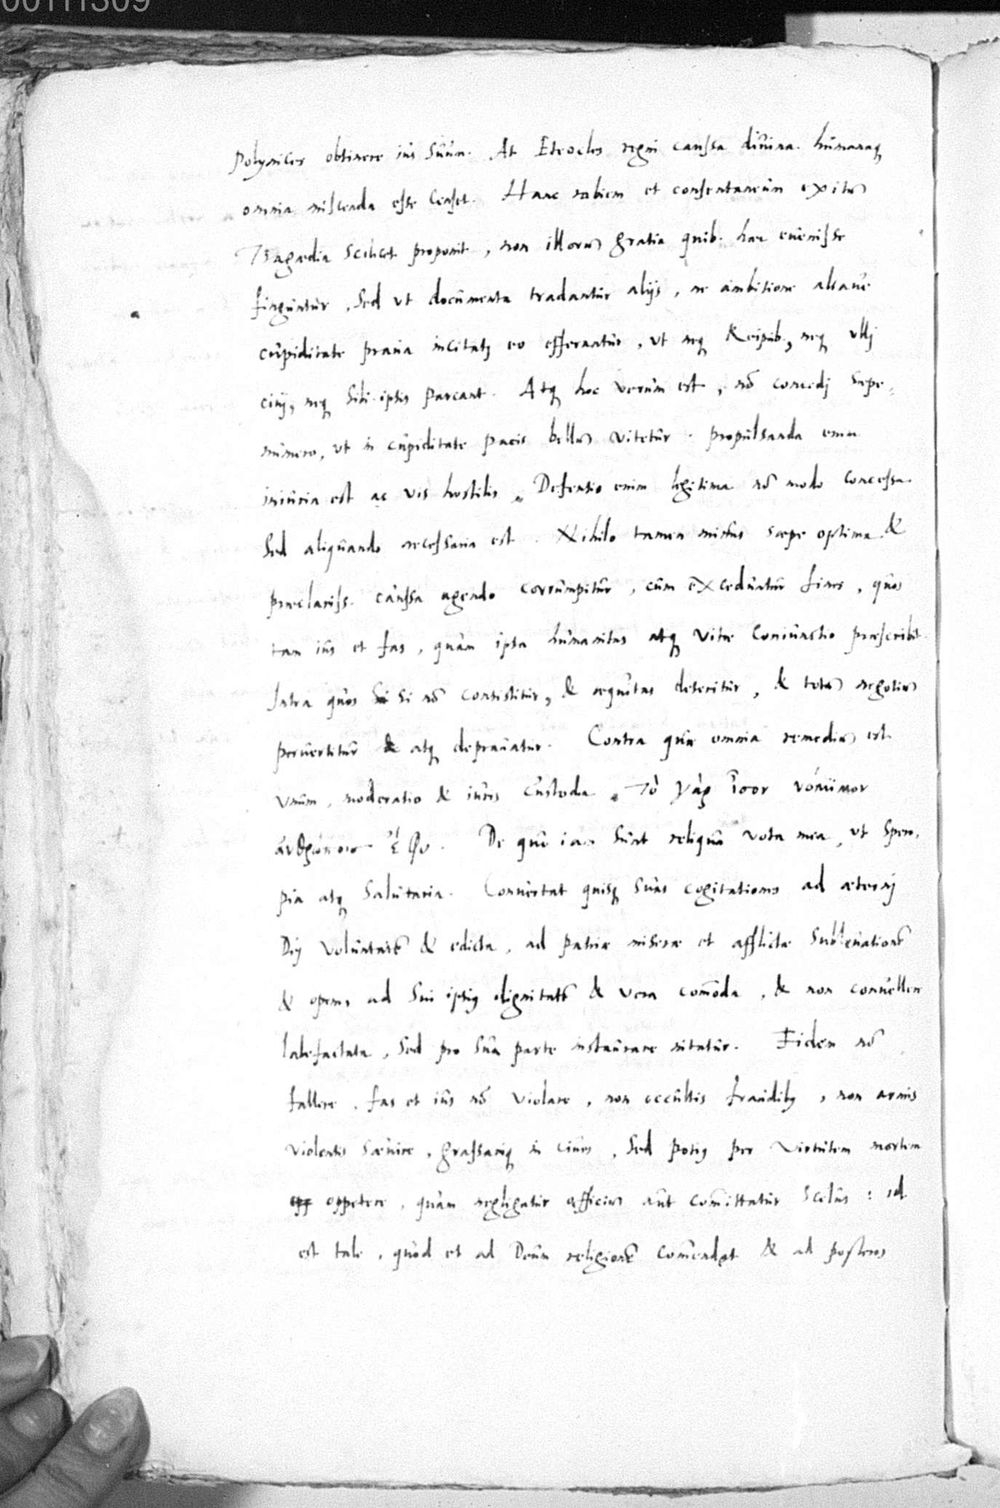 00111309
Polynices obtinere ius suum. At Eteocles regni caussa diuina humanaq
omnia miscenda esse censet. Hanc rabiem et consentaneum exitū
Tragædia scilicet proponit, non illorū gratia quib. hæc euenisse
finguntur, sed vt documenta tradantur alijs, ne ambitione aliaue
cupiditate praua incitatj eo efferantur, vt neq Reipub, neq vllj
ciuj, neq sibi ipsis parcant. Atq hoc verum est, nō concedj sæpe-
numero, vt in cupiditate pacis bellū vitetur. propulsanda enim
iniuria est ac vis hostilis. Defensio enim legitima nō modo concessa
sed aliquando necessaria est. Nihilo tamen minus sæpe optima &
præclariss. caussa agendo corrumpitur, cum exceduntur fines, quos
tam ius et fas, quàm ipsa humanitas atq vitæ coniunctio præscribit.
Intra quos si nō consistitur, & æquitas deteritur, & totū negotiū
peruertitur atq deprauatur. Contra quæ omnia remediū est
vnum, moderatio & iuris custodia. Τὸ γὰρ ἴσον νόμιμον
ἀνθρώποις ἔφυ. De quo iam sunt reliqua vota mea, vt spero,
pia atq salutaria. Conuertat quisq suas cogitationes ad æternj
Dej voluntatē & edicta, ad patriæ miseræ et afflictæ subleuationē
& opem, ad sui ipsius dignitatē & vera com̄oda, & non conuellere
labefactata, sed pro sua parte instaurare nitatur. Fidem nō
fallere, fas et ius nō violare, non occultis fraudibus, non armis
violentis sæuire, grassariq in ciues, sed potius per virtutem mortem
oppetere, quàm negligatur officium aut com̄ittatur scelus: id
est tale, quod et ad Deum religionē com̄endet & ad posteros